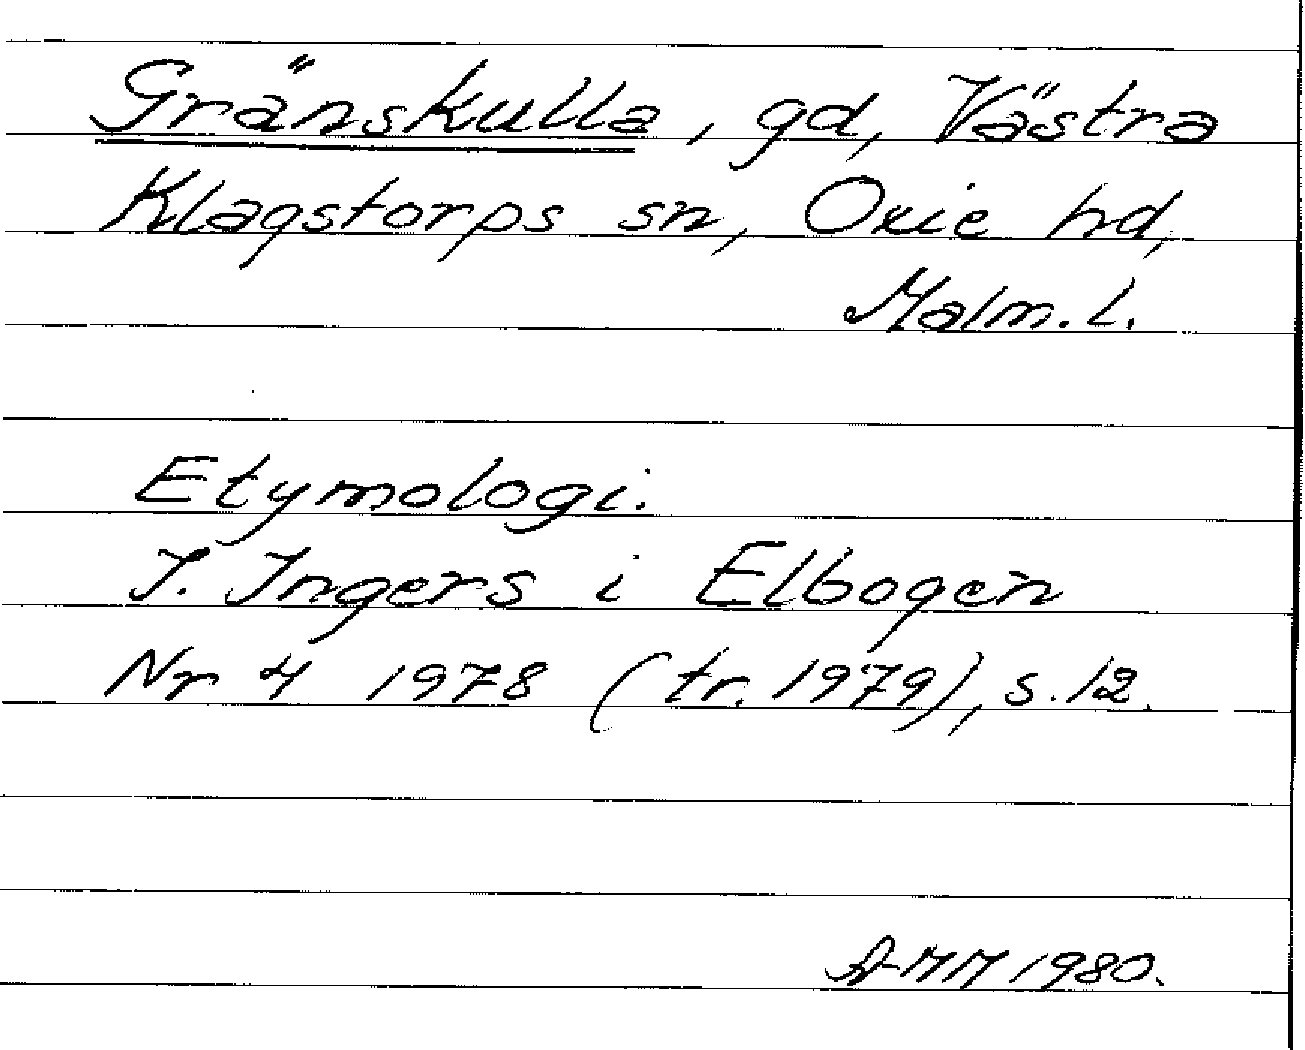 Gränskulla, gd, Västra
Klagstorps sn, Oxie hd,
Malm. l.
Etymologi.
I. Ingers i Elbogen
Nr 4 1978 (tr. 1979), s. 12.
A-MM 1980.